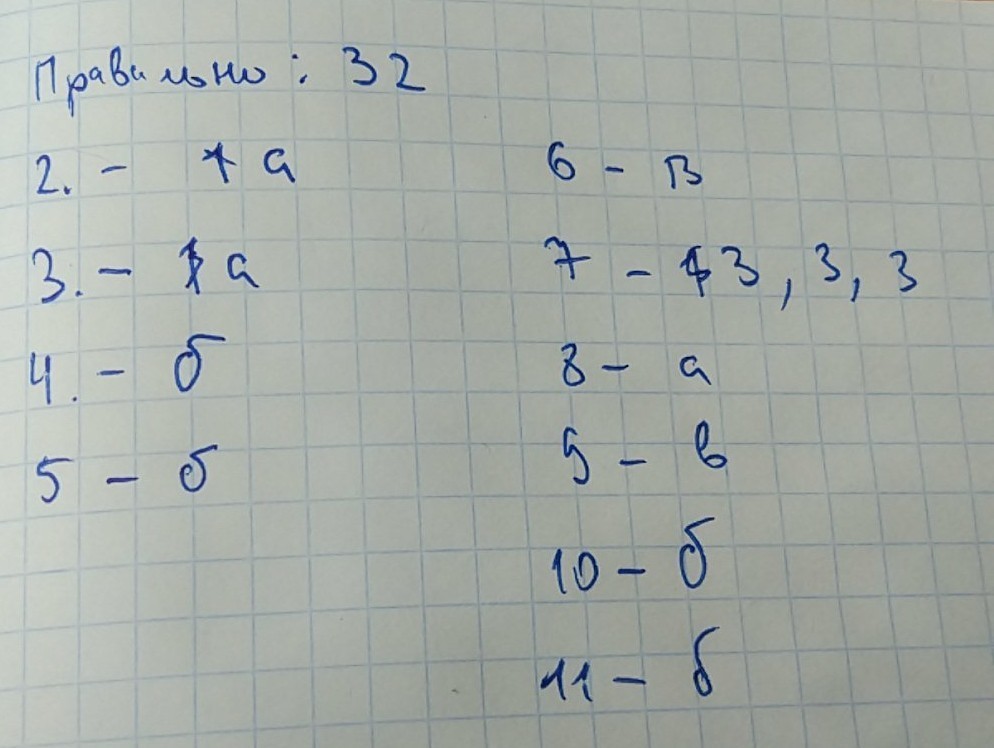 Правильно: 32
2. - а
3. - а
4. - б
5 - б
6 - в
7 - 3, 3, 3
8 - а
9 - в
10 - б
11 - б